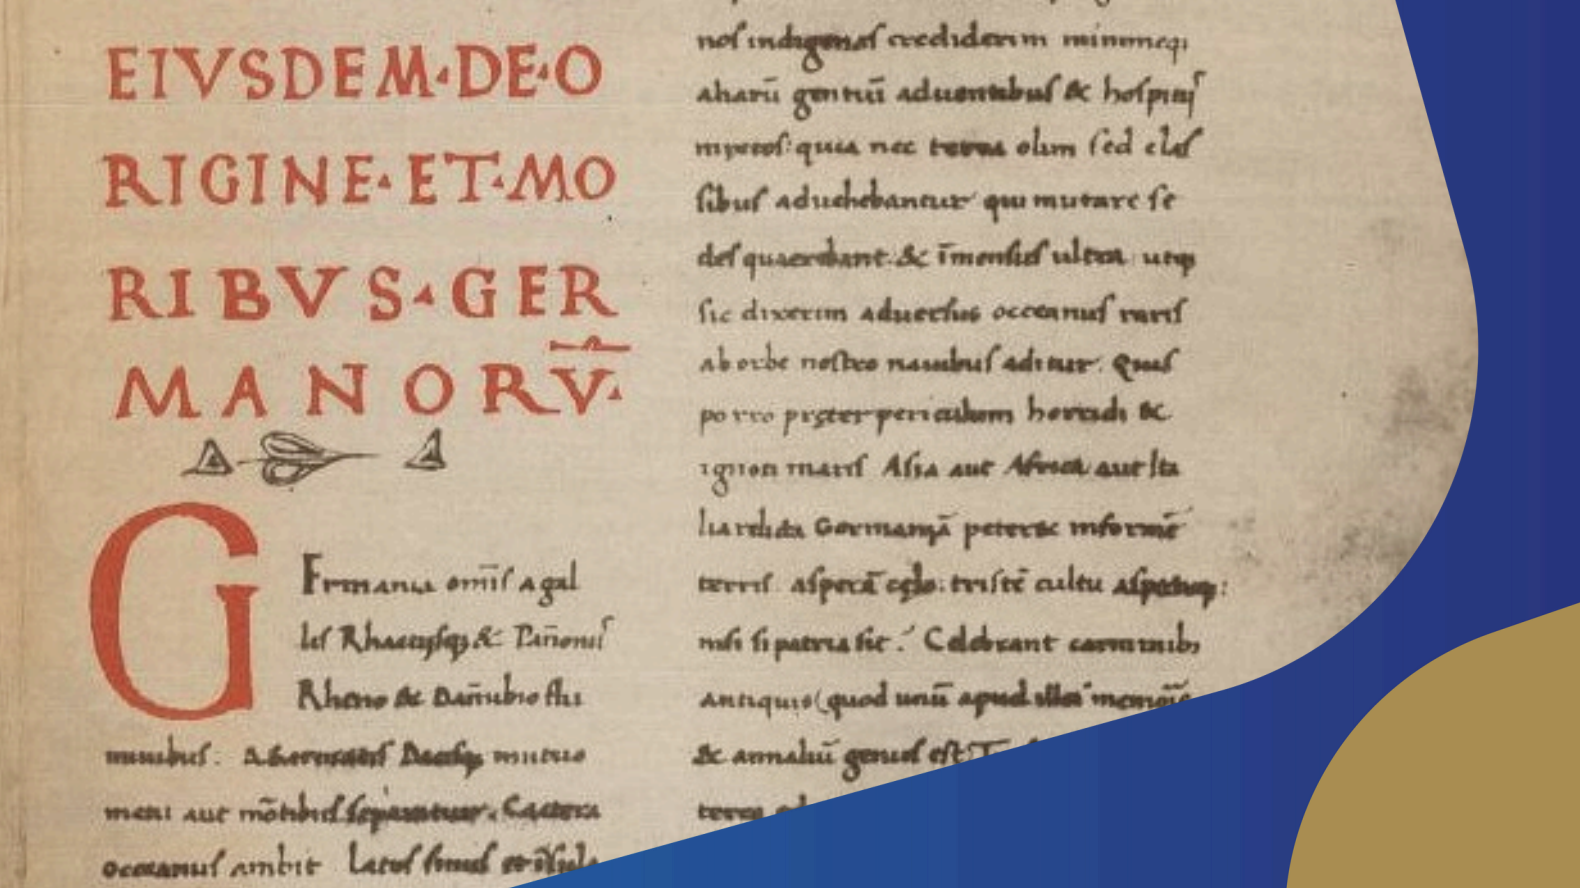 EIVSDEM·DE·O
RIGINE·ET·MO
RIBVS·GER
MANORV̅·
G
Ermania omīs a gal
lis Rhaetisq; & Pānoniis
Rheno & Danubio flu
minibus. A Sarmatis Dacisq; mutuo
metu aut mōtibus separatur. Caetera
occeanus ambit latos sinus et īsula
nos indigenas crediderim minimeq;
aliarū gentiū aduentibus & hospitijs
mixtos: quia nec terra olim sed clas
sibus aduehebantur qui mutare se
des quaerebant. & īmensus ultra utq;
sic dixerim aduersus occeanus raris
ab orbe nostro nauibus aditur. Quis
porro pręter periculum horridi &
ignoti maris Asia aut Africa aut Ita
lia relicta Germaniā peteret informē
terris. asperā cęlo: tristē cultu aspectuq;:
nisi si patria sit. Celebrant carminibs
antiquis (quod unū apud illos memorię
& annaliū genus est:
terra